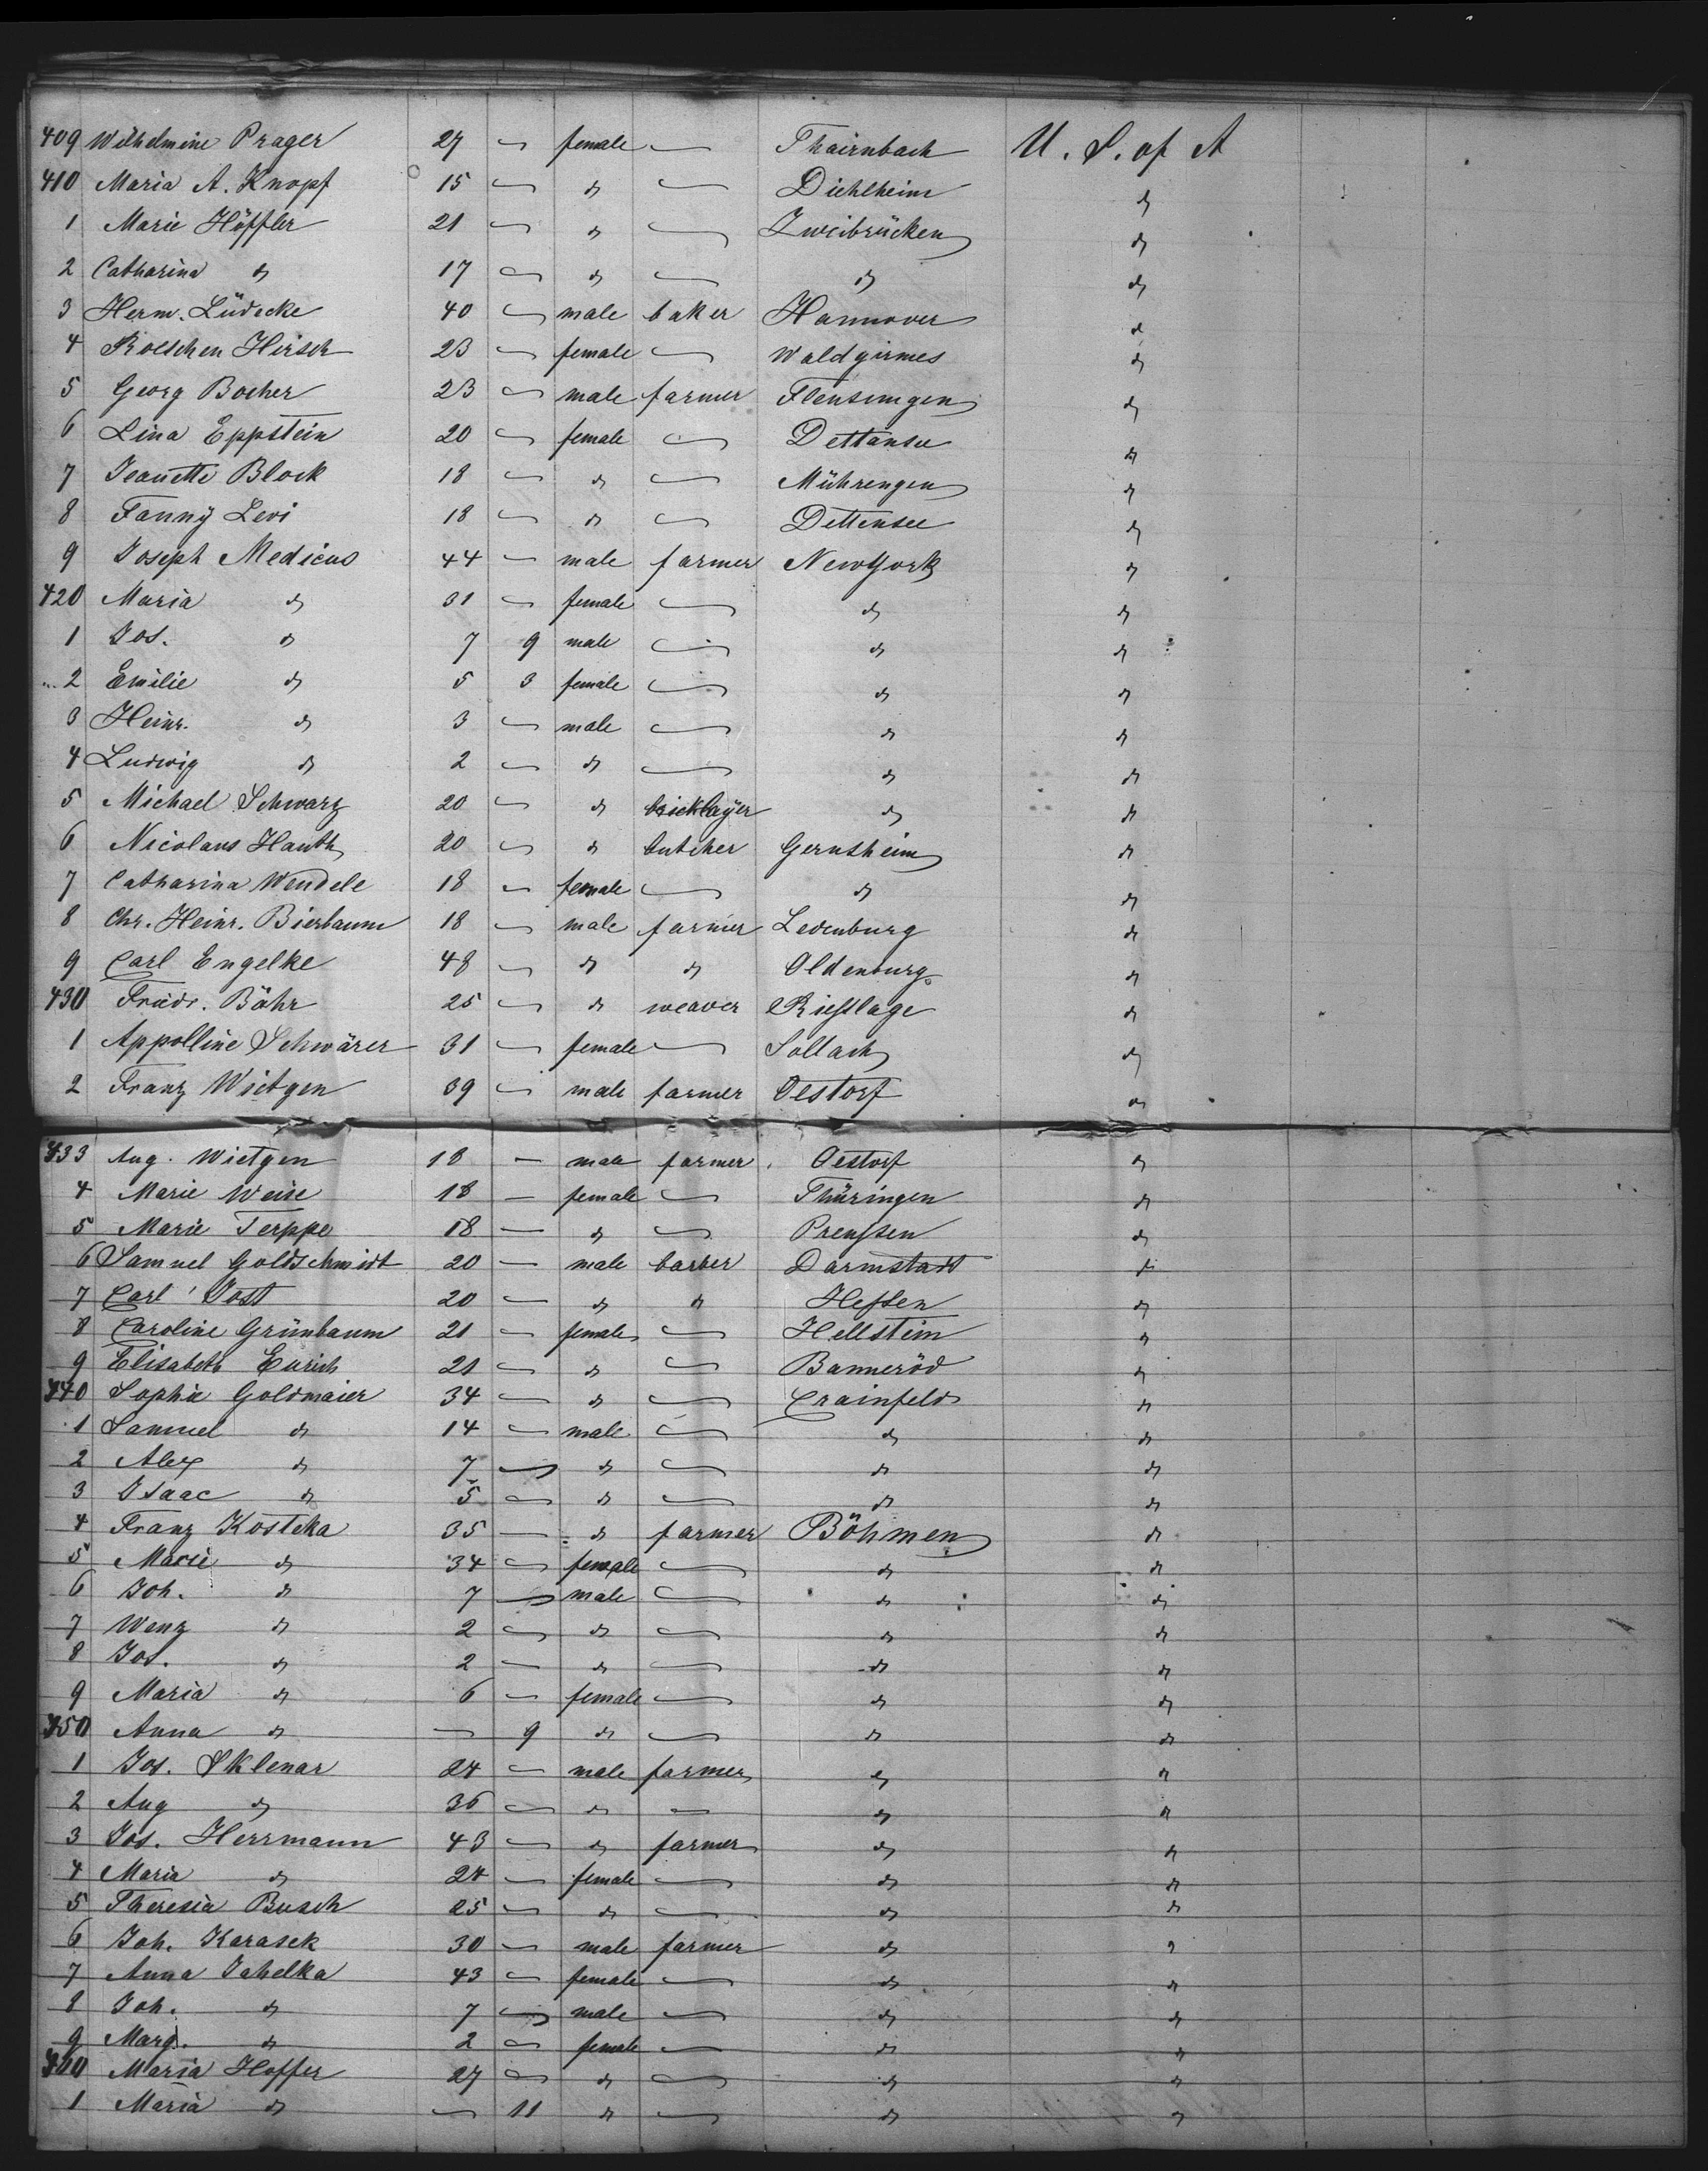 409 Wilhelmine Prager 27 — female — Thairnbach U. S. of A
410 Maria A. Knopf 15 — " — Diehlheim "
1 Marie Höffler 21 — " — Zweibrücken "
2 Catharina " 17 — " — " "
3 Herm. Lüdecke 40 — male baker Hannover "
4 Roeschen Hirsch 23 — female — Waldgirmes "
5 Georg Bocher 23 — male farmer Flensungen "
6 Lina Eppstein 20 — female — Dettansee "
7 Jeanette Block 18 — " — Mühringen "
8 Fanny Levi 18 — " — Dettensee "
9 Joseph Medicus 44 — male farmer New York "
420 Maria " 31 — female — " "
1 Jos. " 7 9 male — " "
2 Emilie " 5 3 female — " "
3 Heinr. " 3 — male — " "
4 Ludwig " 2 — " — " "
5 Michael Schwarz 20 — " bricklayer " "
6 Nicolaus Hauth 20 — " butcher Gernsheim "
7 Catharina Wendele 18 — female — " "
8 Chr. Heinr. Bierbaum 18 — male farmer Ledenburg "
9 Carl Engelke 48 — " " Oldenburg "
430 Friedr. Bähr 25 — " weaver Riesslage "
1 Appolline Schwärer 31 — female — Sollach "
2 Franz Wietgen 39 — male farmer Oestorf "
433 Aug. Wietgen 18 — male farmer Oestorf "
4 Marie Weise 18 — female — Thüringen "
5 Marie Terppe 18 — " — Preussen "
6 Samuel Goldschmidt 20 — male barber Darmstadt "
7 Carl Jost 20 — " " Hessen "
8 Caroline Grünbaum 21 — female — Hellstein "
9 Elisabeth Eurich 21 — " — Banneröd "
440 Sophie Goldmaier 34 — " — Crainfeld "
1 Samuel " 14 — male — " "
2 Alex " 7 — " — " "
3 Isaac " 5 — " — " "
4 Franz Kostcka 35 — " farmer Böhmen "
5 Marie " 34 — female — " "
6 Joh. " 7 — male — " "
7 Wenz " 2 — " — " "
8 Jos. " 2 — " — " "
9 Maria " 6 — female — " "
450 Anna " — 9 " — " "
1 Jos. Sklenar 24 — male farmer " "
2 Aug " 36 — " — " "
3 Jos. Herrmann 43 — " farmer " "
4 Maria " 24 — female — " "
5 Theresia Busch 25 — " — " "
6 Joh. Karasek 30 — male farmer " "
7 Anna Jahelka 43 — female — " "
8 Joh. " 7 — male — " "
9 Marg. " 2 — female — " "
460 Maria Hoffer 27 — " — " "
1 Maria " — 11 " — " "